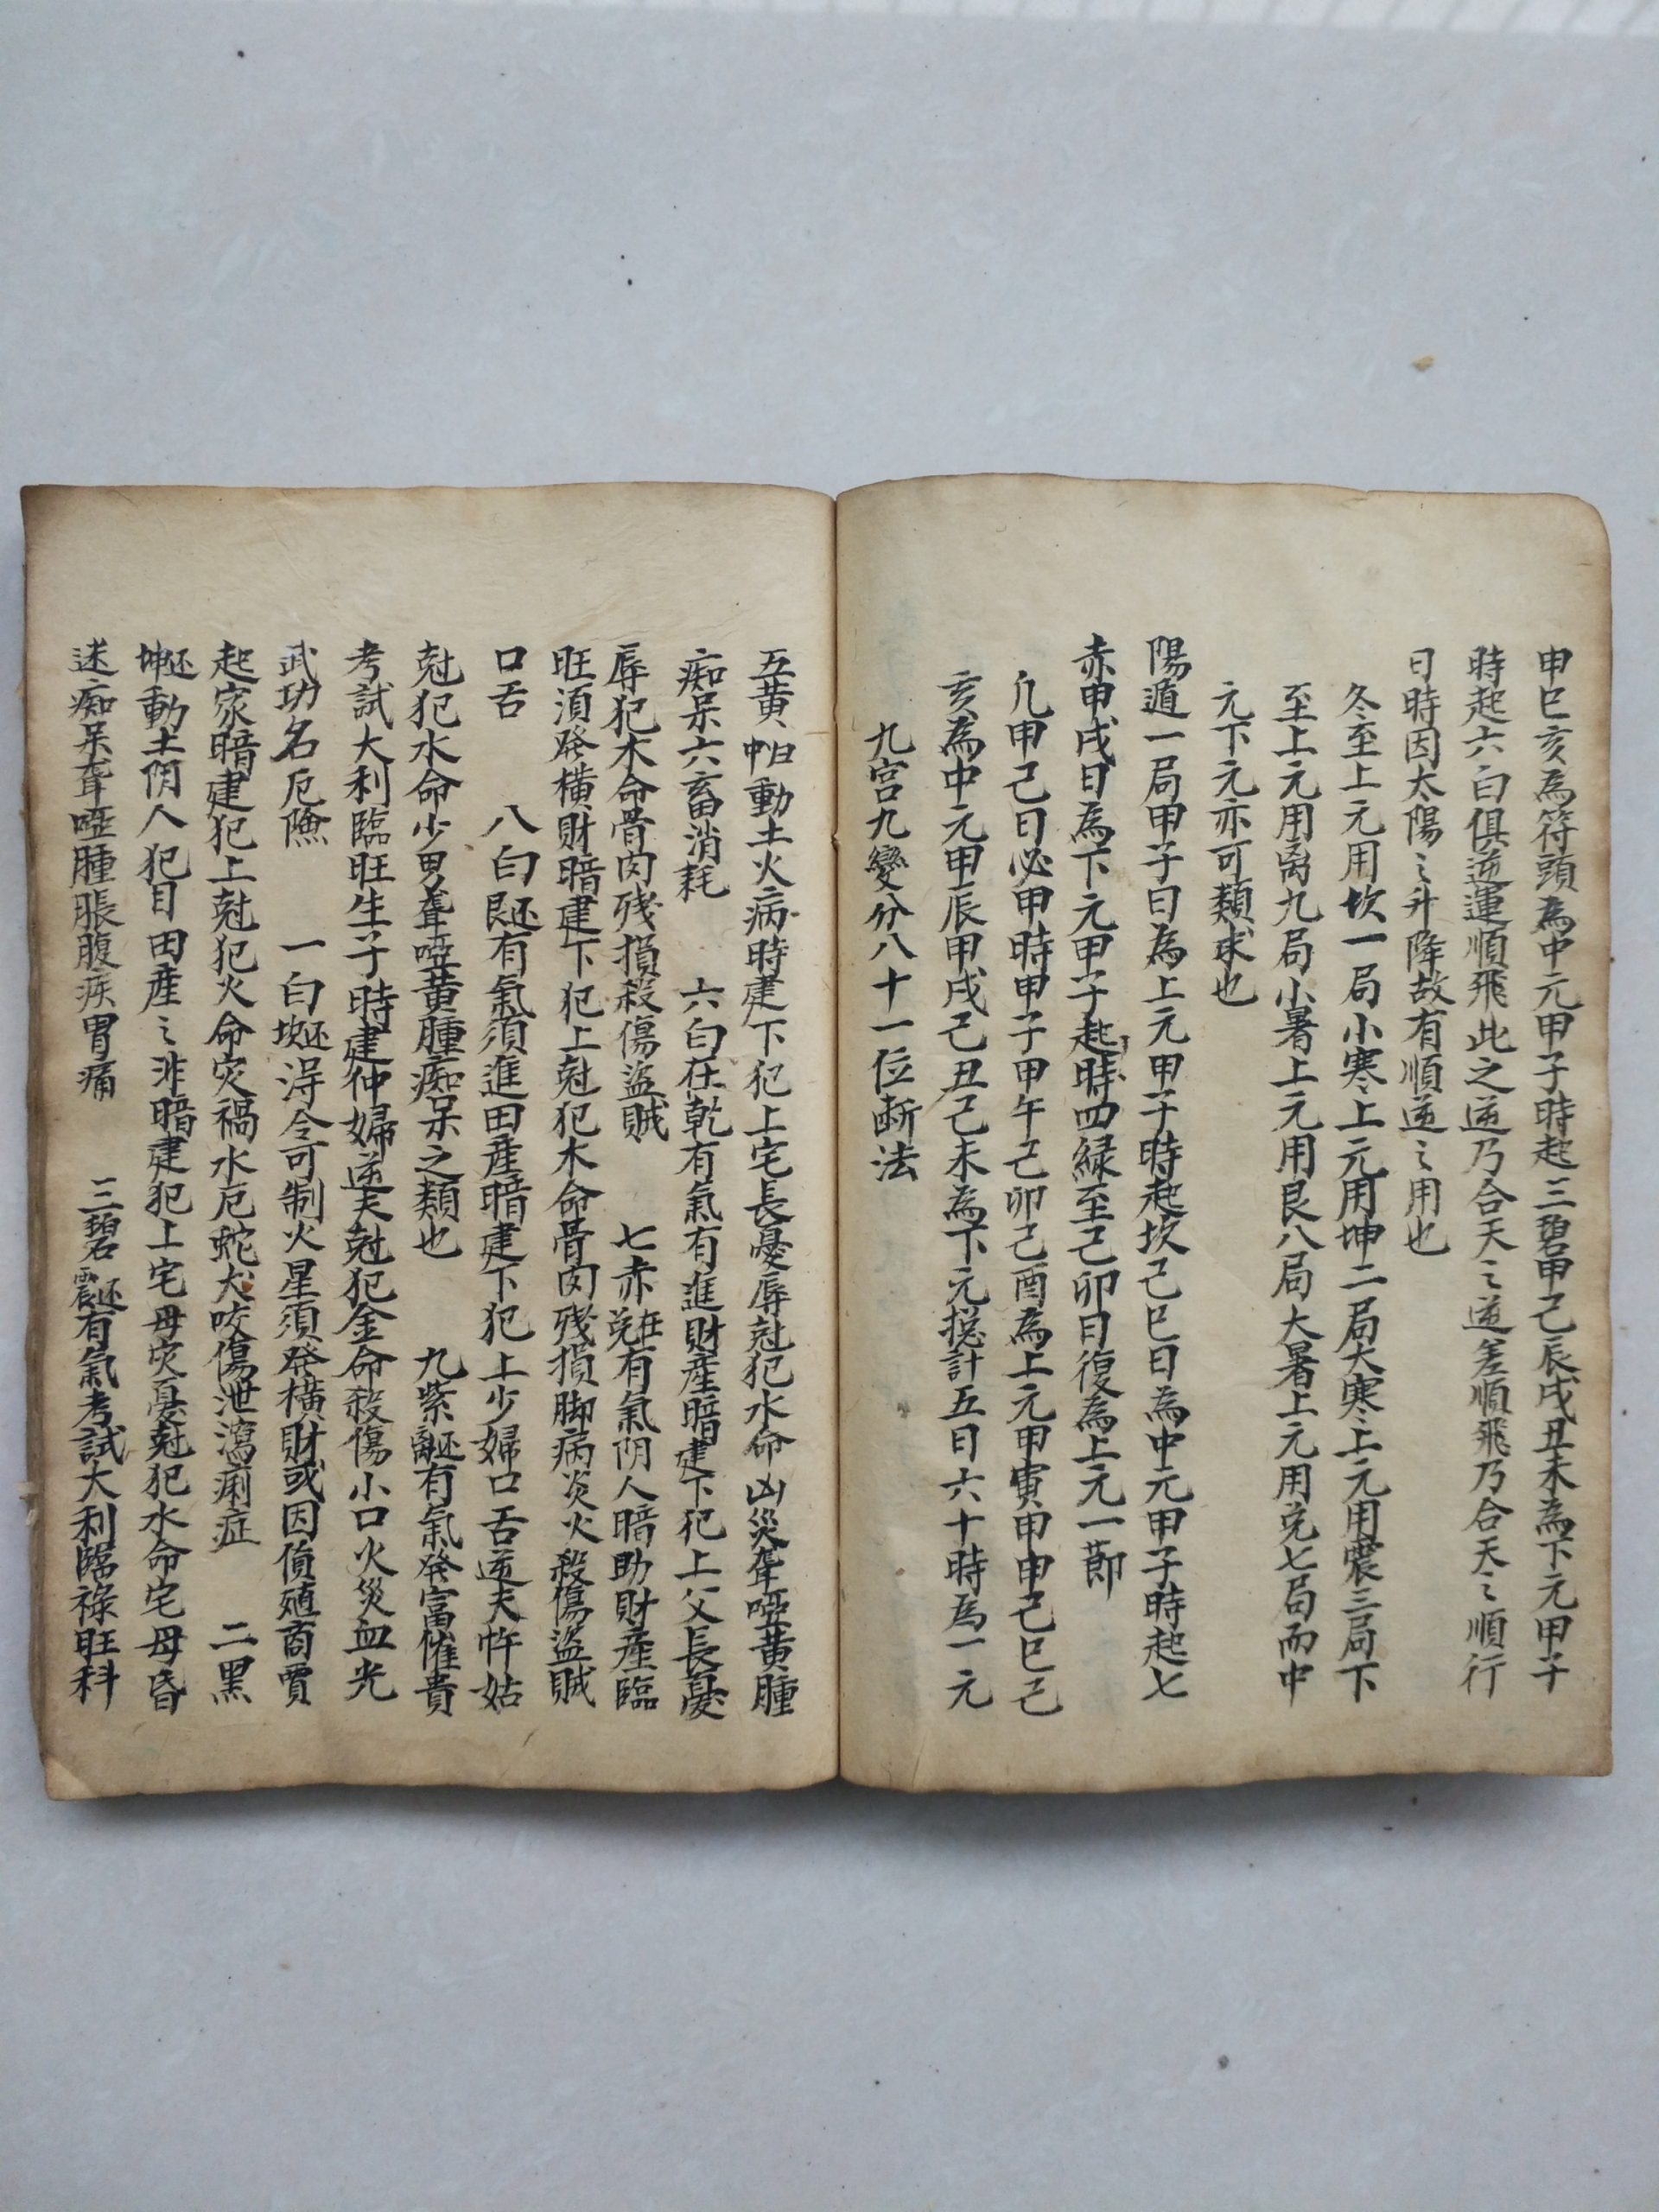 申巳亥為符頭為中元甲子時起三碧甲己辰戌丑未為下元甲子
時起六白俱逆運順飛此之逆乃合天之逆差順飛乃合天之順行
日時因太陽之升降故有順逆之用也
冬至上元用坎一局小寒上元用坤二局大寒上元用震三局下
至上元用离九局小暑上元用艮八局大暑上元用兑七局而中
元下元亦可類求也
陽遁一局甲子日為上元甲子時起坎己巳日為中元甲子時起七
赤甲戌日為下元甲子起時四緑至己卯日復為上元一節
凡甲己日必甲時甲子甲午己卯己酉為上元甲寅申申己巳己
亥為中元甲辰甲戌己丑己未為下元摠計五日六十時為一元
九宮九變分八十一位断法
五黄中归動土火病時建下犯上宅長憂辱尅犯水命凶災聾啞黄腫
痴呆六畜消耗 六白在乾有氣有進財產暗建下犯上父長憂
辱犯木命骨肉残損殺傷盜賊 七赤在兑有氣阴人暗助財產臨
旺須發橫財暗建下犯上尅犯木命骨肉残損脚病炎火殺傷盜賊
口舌 八白还艮有氣須進田產暗建下犯上少婦口舌逆夫忤姑
尅犯水命少男聾啞黄腫痴呆之類也 九紫还離有氣發富催貴
考試大利臨旺生子時建仲婦逆夫尅犯金命殺傷小口火災血光
武功名厄險 一白还坎淂令可制火星須發横財或因貨殖商賈
起家暗建犯上尅犯火命灾禍水厄蛇犬咬傷泄瀉痢症 二黑
还坤動土阴人犯目田產之非暗建犯上宅母灾憂尅犯水命宅母昏
迷痴呆聾啞腫脹腹疾胃痛 三碧还震有氣考試大利臨祿旺科